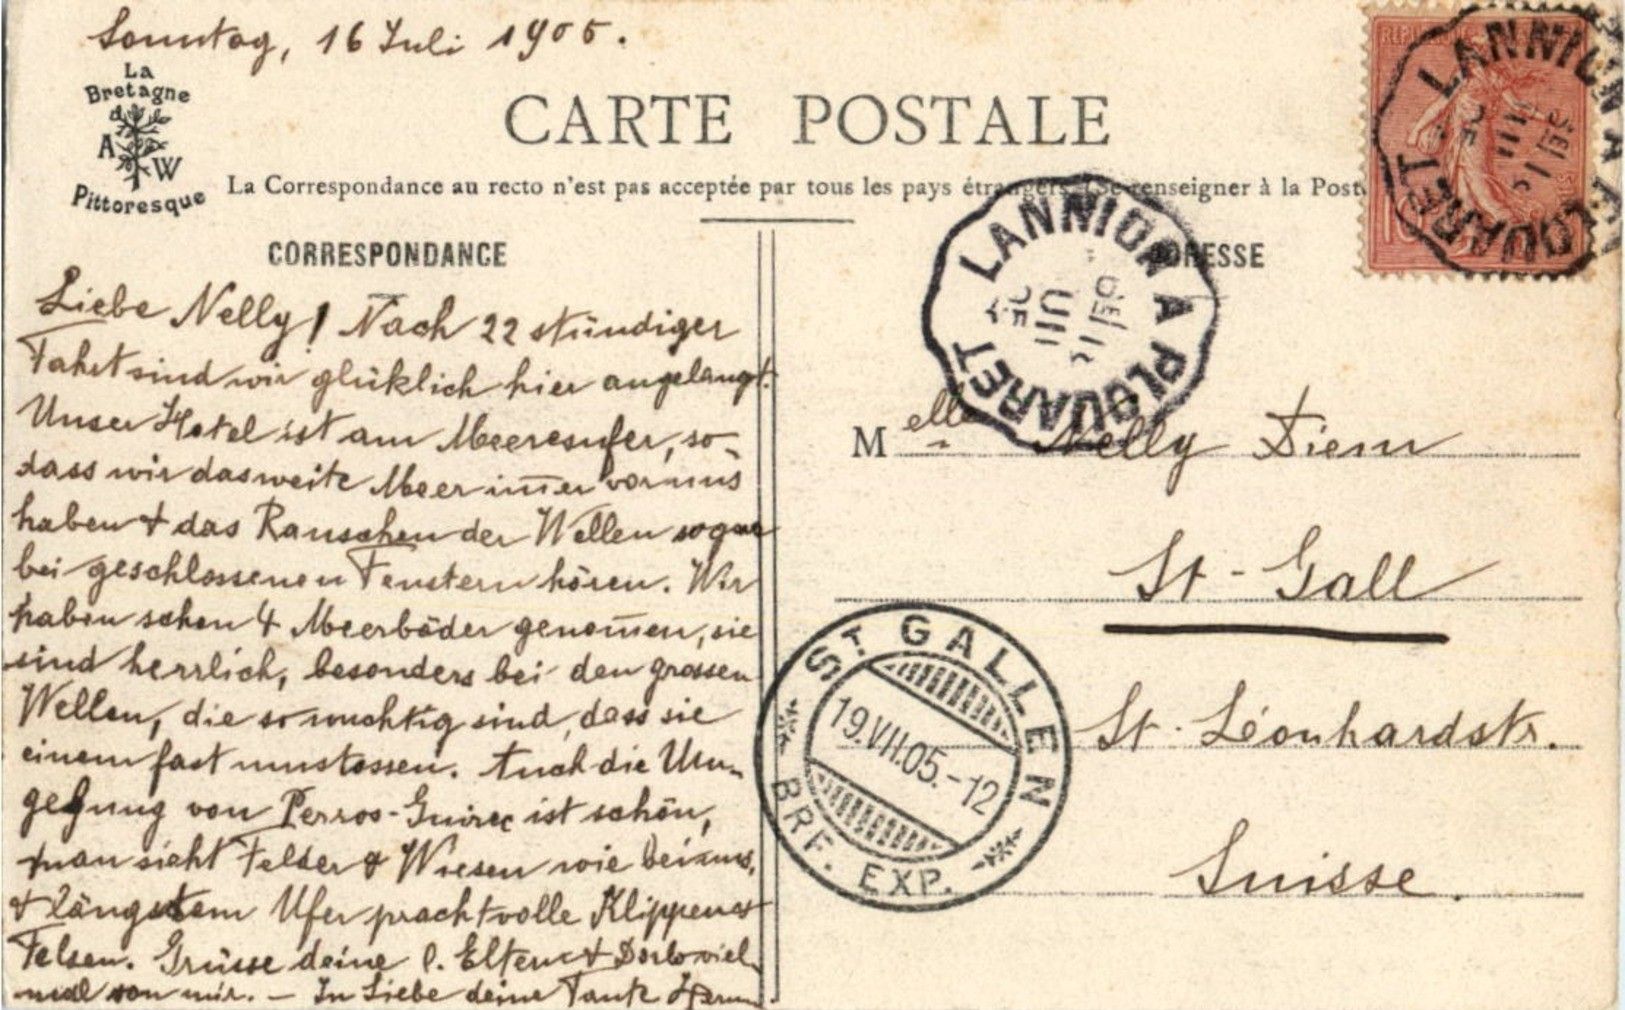 Sonntag, 16 Juli 1905.
La
Bretagne
A W
Pittoresque
CARTE POSTALE
La Correspondance au recto n'est pas acceptée par tous les pays étrangers (Se renseigner à la Post
CORRESPONDANCE
ADRESSE
Liebe Nelly! Nach 22 stündiger
Fahrt sind wir glüklich hier angelangt.
Unser Hotel ist am Meeresufer, so-
dass wir das weite Meer im̄er vor uns
haben + das Rauschen der Wellen sogar
bei geschlossenen Fenstern hören. Wir
haben schon 4 Meerbäder genom̄en, sie
sind herrlich, besonders bei den grossen
Wellen, die so wuchtig sind, dass sie
einem fast umstossen. Auch die Um-
gegung von Perros-Guirec ist schön,
man sieht Felder & Wiesen wie bei uns,
+ längstem Ufer prachtvolle Klippen &
Felsen. Grüsse deine l. Eltern + viel
mal von mir. – In Liebe deine Tante
LANNION A PLOUARET
LANNION A PLOUARET
Melle Nelly Diem
St-Gall
St. Léonhardstr.
Suisse.
ST. GALLEN
19.VII.05.-12
BRF. EXP.